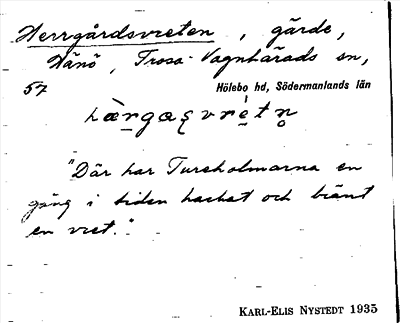 Herrgårdsvreten, gärde,
Hänö, Trosa-Vagnhärads sn,
57 Hölebo hd, Södermanlands län
"Där har Tureholmarna en
gång i tiden hackat och bränt
en vret."
KARL-ELIS NYSTEDT 1935